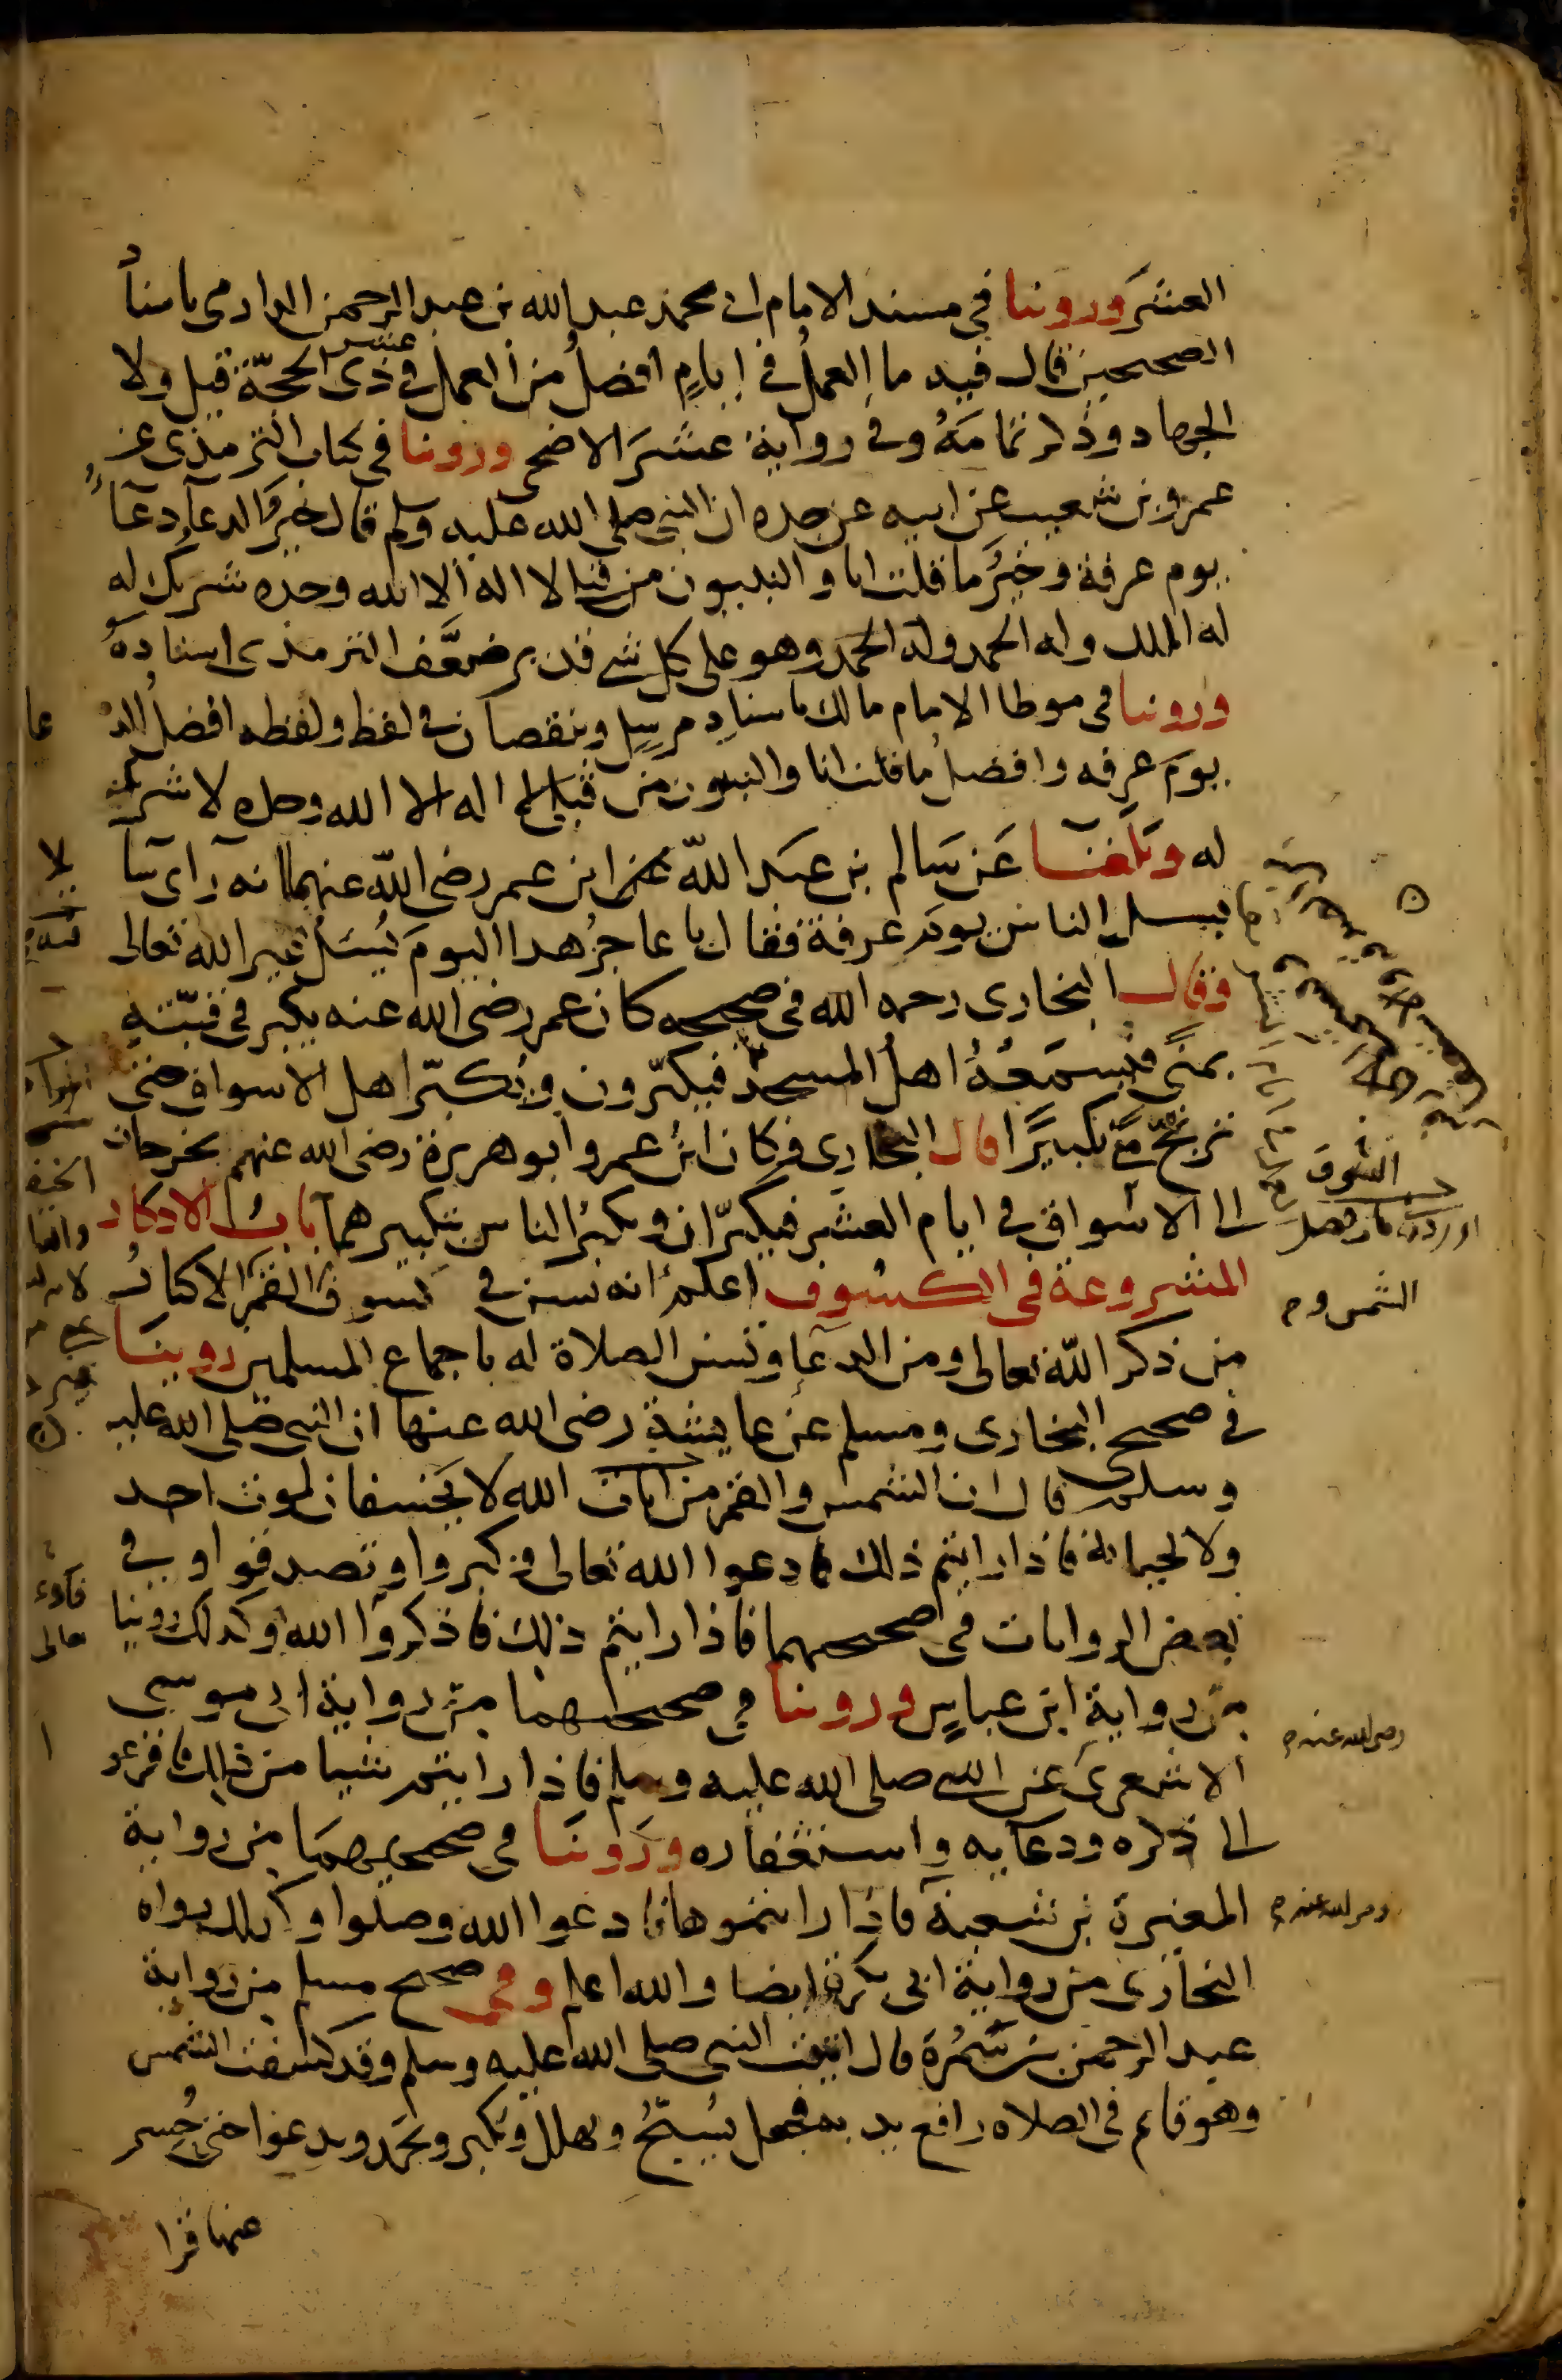 العشر وروينا في مسند الامام ابي محمد عبد الله بن عبد الرحمن الدارمي باسنا
الصحيحين قال فيه ما العمل في ايام افضل من العمل في عشر ذي الحجة قيل ولا
الجهاد وذكر تمامه وفي رواية عشر الاضحى وروينا في كتاب الترمذي عن
عمرو بن شعيب عن ابيه عن جده ان النبي صلى الله عليه وسلم قال خير الدعاء دعاء
يوم عرفة وخير ما قلت انا والنبيون من قبلي لا اله الا الله وحده شريك له
له الملك وله الحمد وله الحمد وهو على كل شي قدير ضعف الترمذي اسناده
وروينا في موطا الامام مالك باسناد مرسل وبنقصان في لفظ ولفظه افضل الد
عا
يوم عرفه وافضل ما قلت انا والنبيون من قبلي لا اله الا الله وحده لا شريك
له وبلغنا عن سالم بن عبد الله بن عمر رضي الله عنهم انه راى سا
يلا
يسل الناس يوم عرفة فقال يا عاجز هذا اليوم يسل غير الله تعالى
وقال البخاري رحمه الله في صحيحه كان عمر رضي الله عنه يكبر في قبته
بمنى فيسمعه اهل المسجد فيكبرون ويكبر اهل الاسواق حتى
ترتج منى تكبيرا قال البخاري وكان ابن عمر وابو هريرة رضي الله عنهم يخرجان
الى الاسواق في ايام العشر فيكبران ويكبر الناس بتكبيرهما باب الاذكار
المشروعة في الكسوف اعلم انه يسن في كسوف القمر الاكثار
الشمس و
من ذكر الله تعالى ومن الدعا وتسن الصلاة له باجماع المسلمين روينا
في صحيح البخاري ومسلم عن عايشة رضي الله عنها ان النبي صلى الله عليه
وسلم قال ان الشمس والقمر من ايات الله لا يخسفان لموت احد
ولا لحياته فاذا رايتم ذلك فادعوا الله تعالى وكبروا وتصدقوا وفي
بعض الروايات في صحيحهما فاذا رايتم ذلك فاذكروا الله وكذلك روينا
من رواية ابن عباس وروينا في صحيحهما من رواية ابي موسى
رضي الله عنه
الاشعري عن النبي صلى الله عليه وسلم فاذا رايتم شيا من ذلك فافزعو
الى ذكره ودعايه واستغفاره وروينا في صحيحهما من رواية
المغيرة بن شعبة فاذا رايتموها فادعوا الله وصلوا وكذلك رواه
رضي الله عنه
البخاري من رواية ابي بكرة ايضا والله اعلم وفي صحيح مسلم من رواية
عبد الرحمن بن سمرة قال اتيت النبي صلى الله عليه وسلم وقد كسفت الشمس
وهو قايم في الصلاه رافع يديه فجعل يسبح ويهلل ويكبر ويحمد ويدعوا حتى حسر
عنها قرا